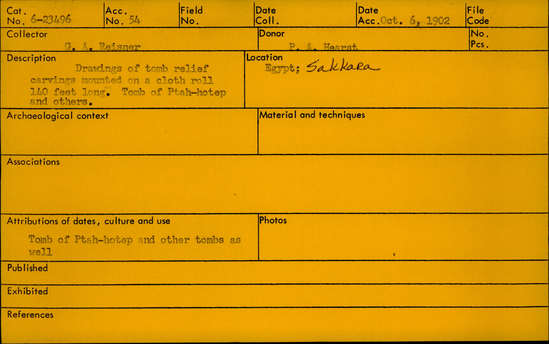 Cat. No. 6-23496 Acc. No. 54 Field No. Date Coll. Date Acc. Oct. 6, 1902 File Code
Collector G. A. Reisner Donor P. A. Hearst No. Pcs.
Description Drawings of tomb relief
carvings mounted on a cloth roll
140 feet long. Tomb of Ptah-hotep
and others.
Location
Egypt; Sakkara
Archaeological context Material and techniques
Associations
Attributions of dates, culture and use Photos
Tomb of Ptah-hotep and other tombs as
well
Published
Exhibited
References